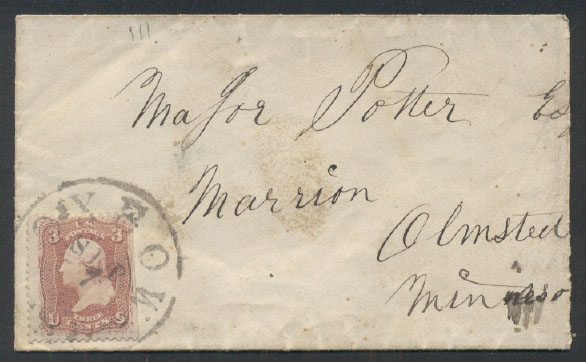 Major Potter Esq
Marrion
Olmsted
Minneso
U.S.
POSTAGE
3 3
U S
THREE
CENTS